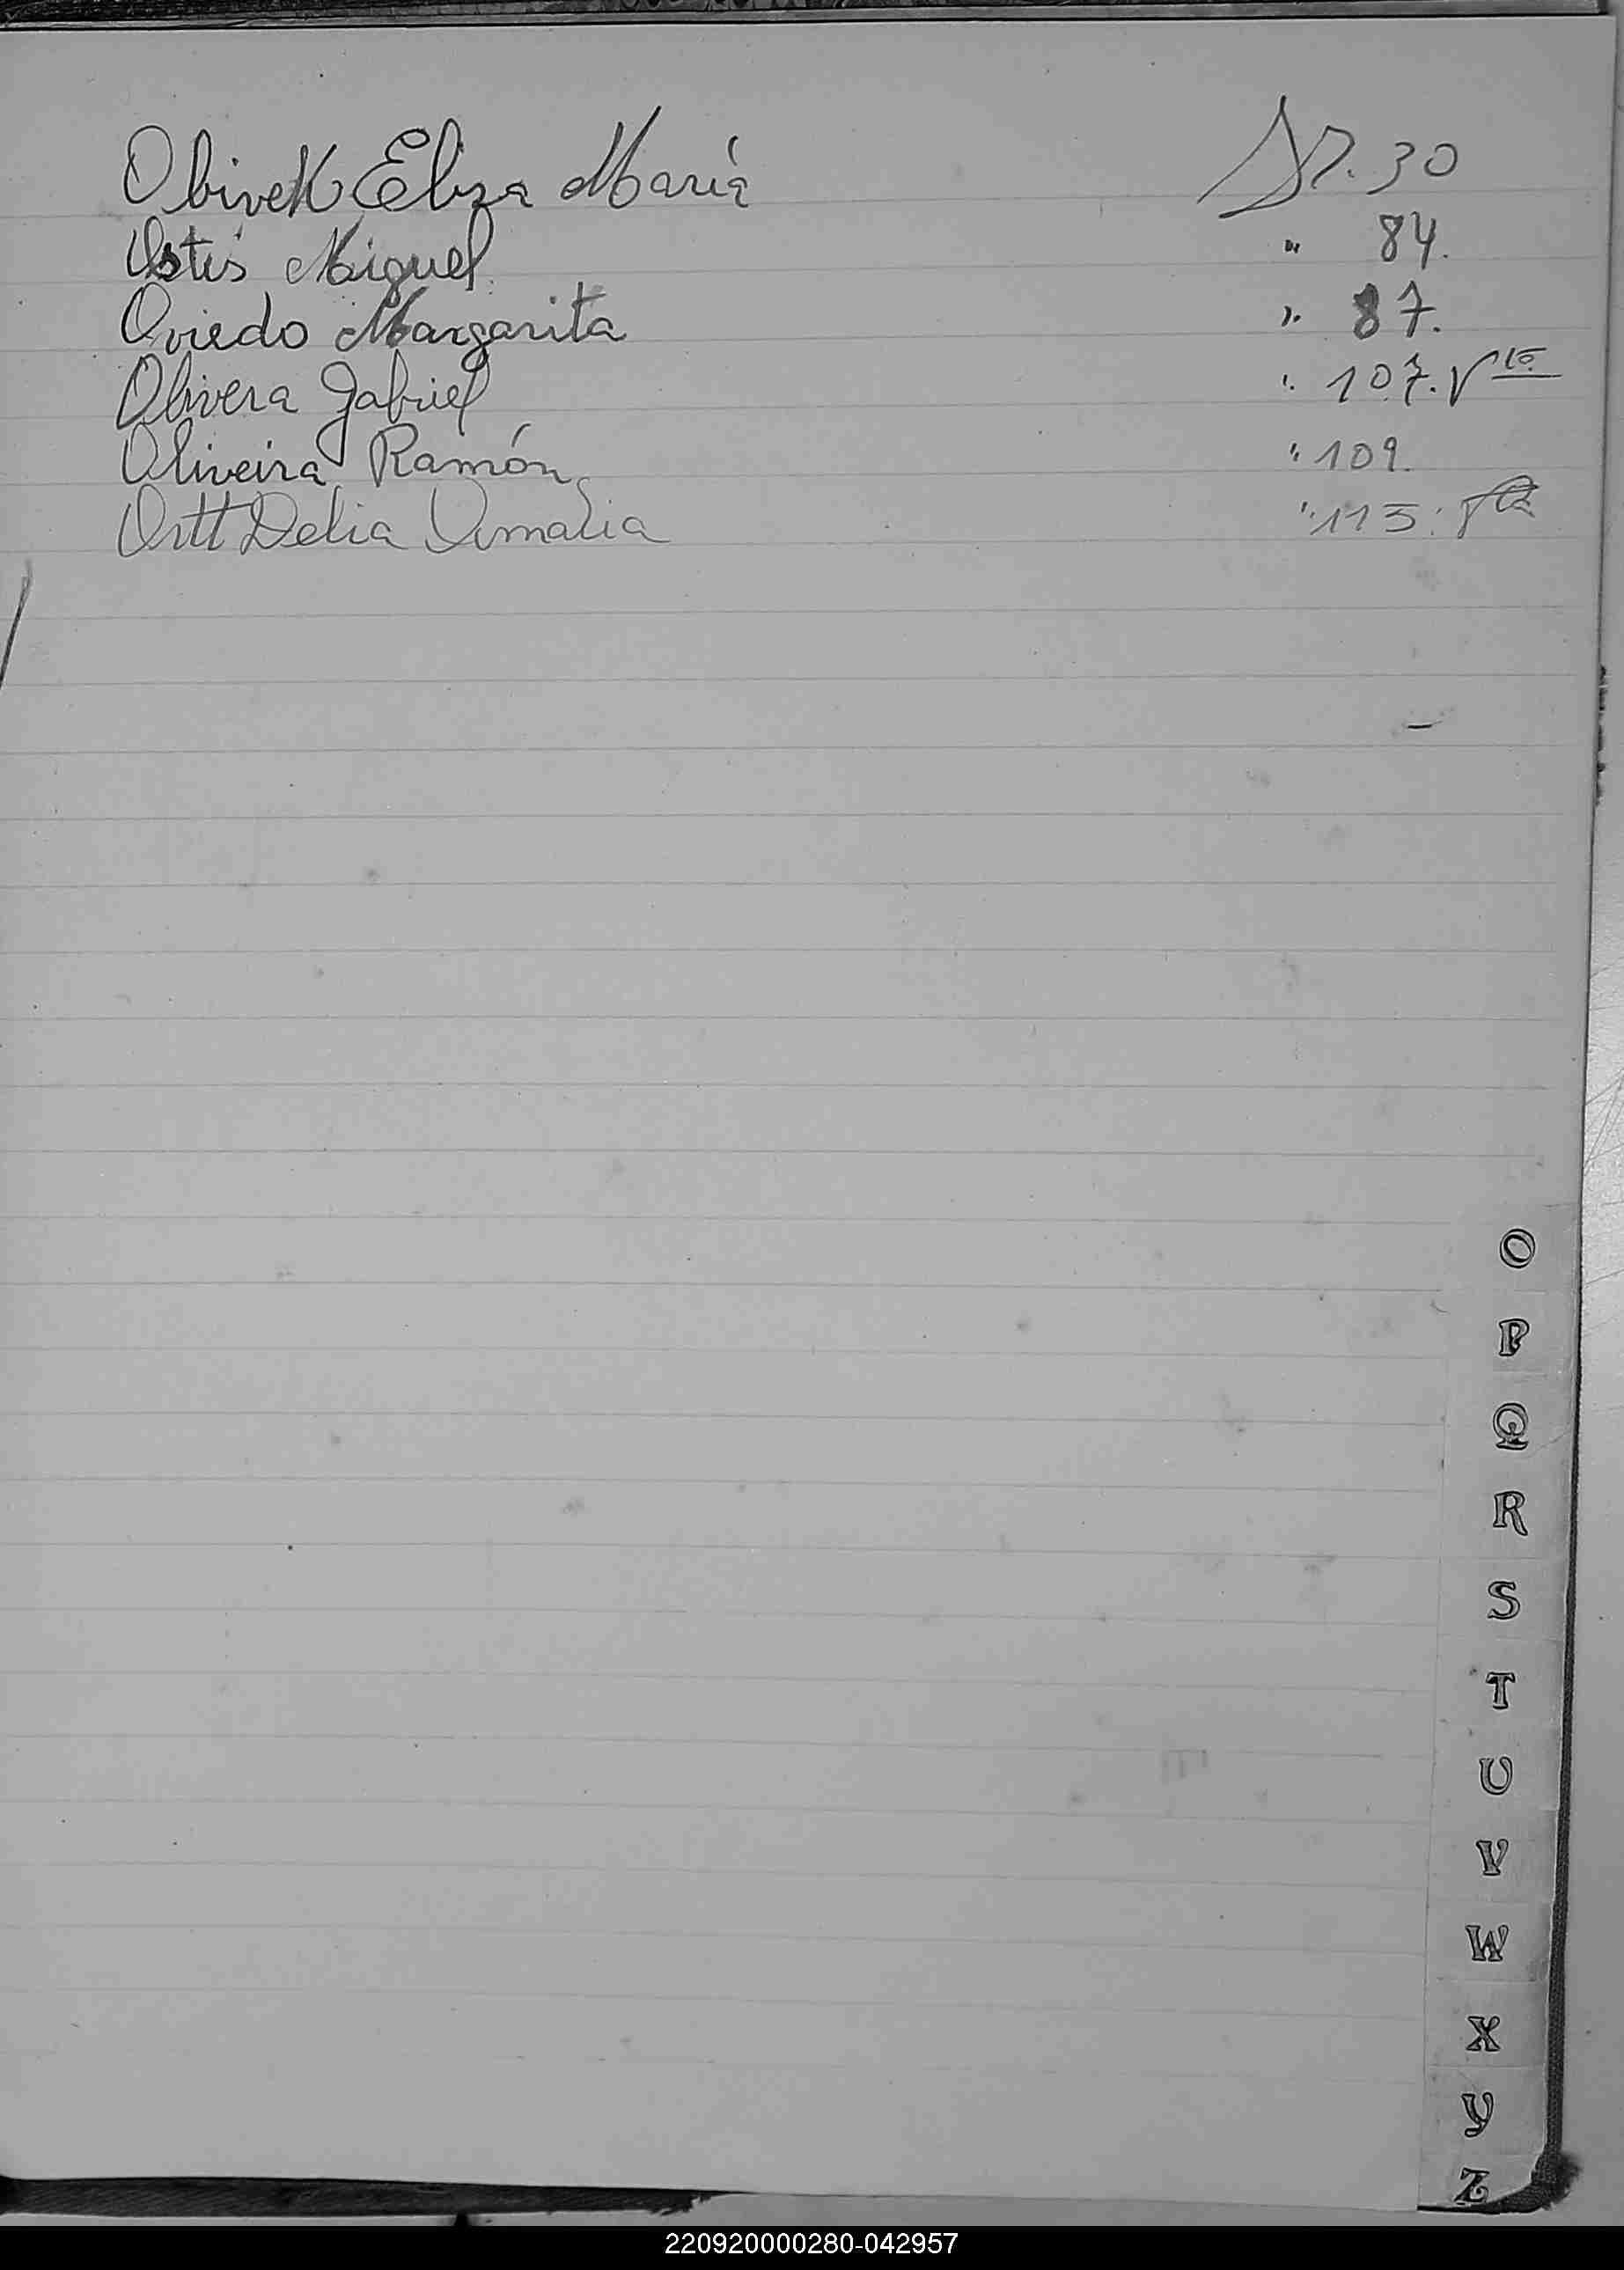 Olivek Eliza María 30
Ostis Miguel " 84.
Oviedo Margarita " 87.
Olivera Gabriel " 107. Vto
Oliveira Ramón " 109.
Ortt Delia Amalia " 115. Vta
O
P
Q
R
S
T
U
V
W
X
Y
Z
220920000280-042957